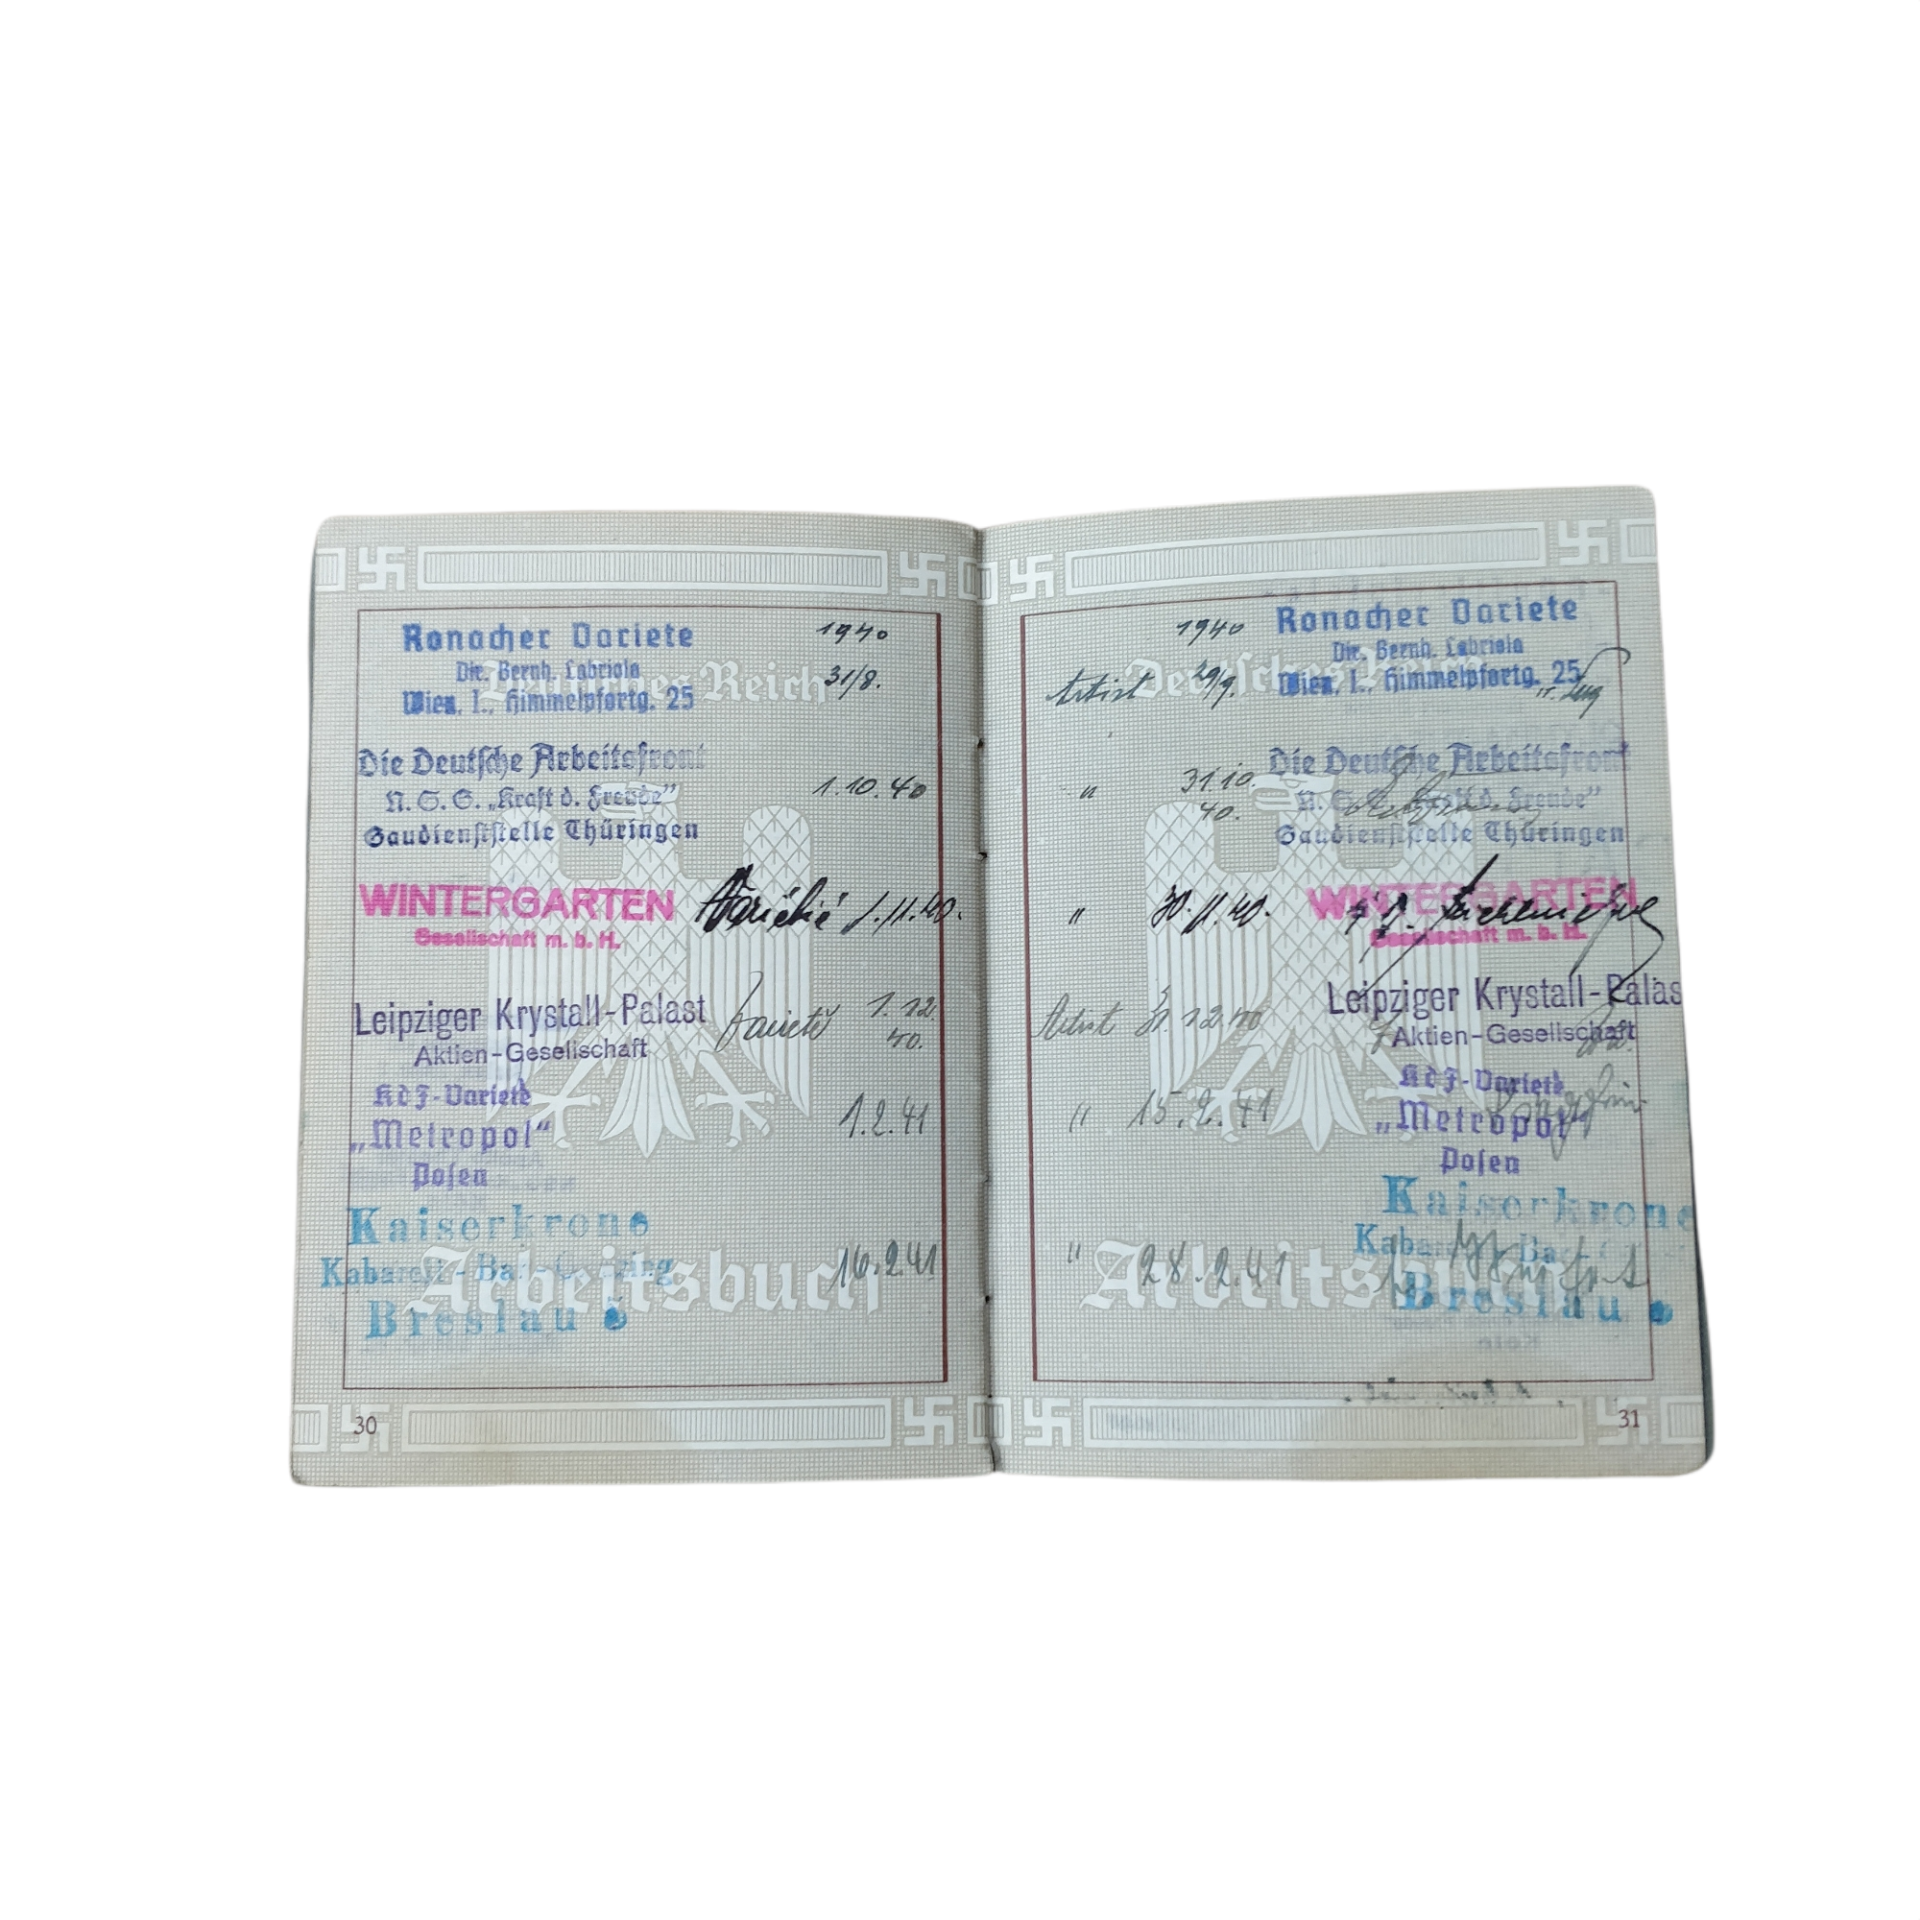 Ronacher Variete
1940
Dir. Bernh. Labriola
31/8.
Wien, I., Himmelpfortg. 25
Deutsches Reich
Die Deutsche Arbeitsfront
N. S. G. „Kraft d. Freude"
1.10.40
Gaudienststelle Thüringen
WINTERGARTEN Varieté 1.11.40.
Gesellschaft m. b. H.
Leipziger Krystall-Palast Varieté 1.12.
Aktien-Gesellschaft 40.
KdF-Varietè
„Metropol“ 1.2.41
Posen
Kaiserkrone
Kabarett-Bar- 16.2.41
Breslau
Arbeitsbuch
30
1940 Ronacher Variete
Dir. Bernh. Labriola
Artist 29/9. Wien, I., Himmelpfortg. 25
Deutsches Reich
Die Deutsche Arbeitsfront
" 31.10. N. S. G. „Kraft d. Freude"
40. Gaudienststelle Thüringen
" 30.11.40. WINTERGARTEN
Gesellschaft m. b. H.
Artist 31.12.40 Leipziger Krystall-Palas
Aktien-Gesellschaft
KdF-Varietè
" 15.2.41 „Metropol“
Posen
Kaiserkrone
" 28.2.41 Kabarett-Bar-
Breslau
Arbeitsbuch
31